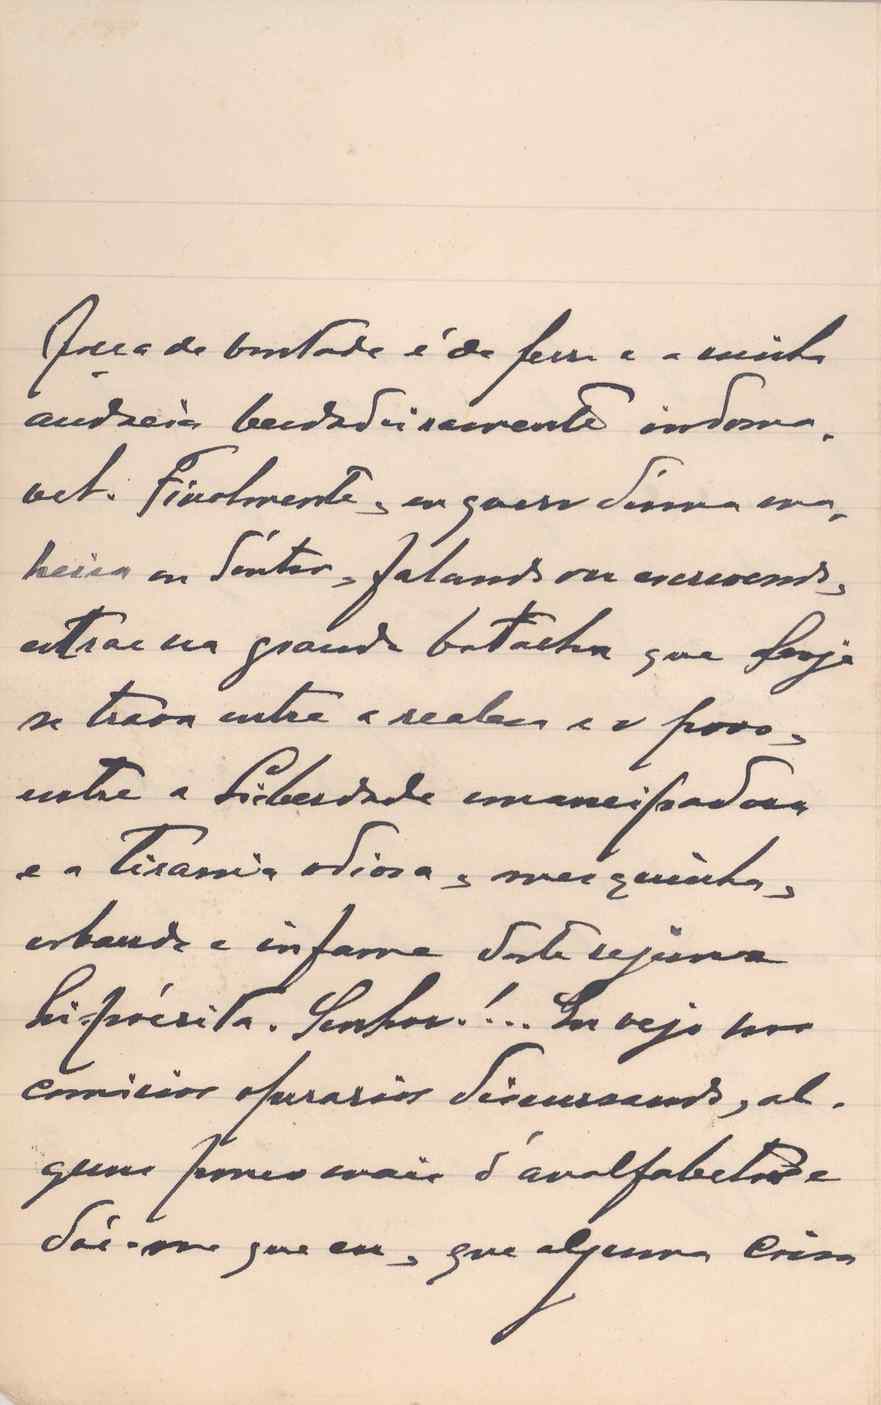 força de vontade é de ferro e a minha
audacia verdadeiramente indoma-
vel. Finalmente, eu quero d'uma ma-
neira ou d'outra, falando ou escrevendo,
entrar na grande batalha que hoje
se trava entre a realeza e o povo,
entre a Liberdade emancipadora
e a tirania odiosa, mesquinha,
e infame deste regimen
hipócrita. Senhor!... Eu vejo nos
comicios operarios discursando, al-
guns pouco mais d'analfabetos e
dóe-me que eu, que alguma coisa